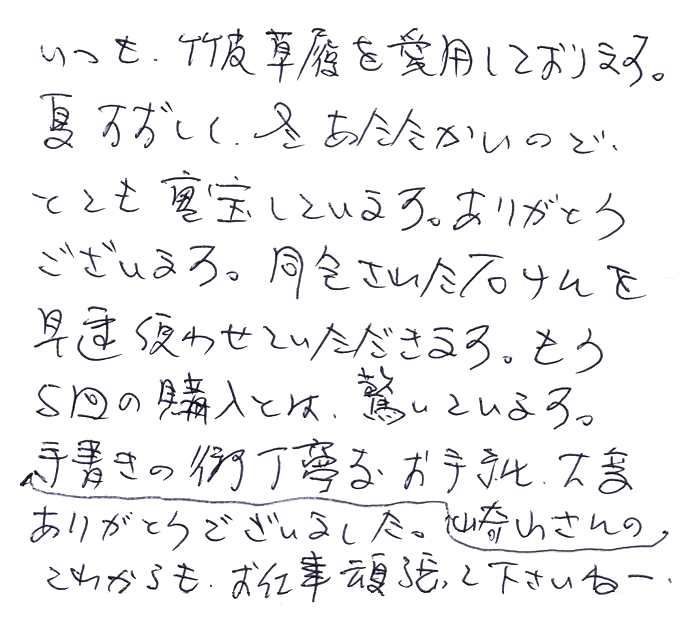 いつも、竹皮草履を愛用しております。
夏すずしく、冬あたたかいので、
とても重宝しています。ありがとう
ございます。同包された石けんを
早速使わせていただきます。もう
5回の購入とは、驚いています。
手書きの御丁寧なお手紙、大変
ありがとうございました。崎山さんの、
これからも、お仕事頑張って下さいねー、